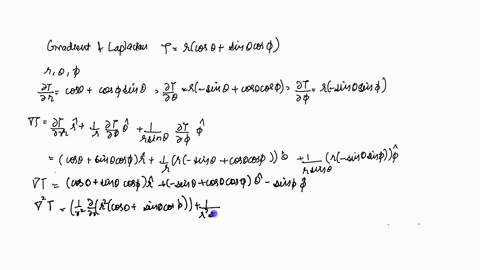 Gradient & Laplacian T = r(cosθ + sinθcosϕ)
r, θ, ϕ
∂T/∂r = cosθ + cosϕ sinθ , ∂T/∂θ = r(-sinθ + cosθcosϕ) , ∂T/∂ϕ = r(-sinθsinϕ)
∇T = ∂T/∂r r̂ + 1/r ∂T/∂θ θ̂ + 1/(r sinθ) ∂T/∂ϕ ϕ̂
= (cosθ + sinθcosϕ) r̂ + 1/r (r(-sinθ + cosθcosϕ)) θ̂ + 1/(r sinθ) (r(-sinθsinϕ)) ϕ̂
∇T = (cosθ + sinθ cosϕ) r̂ + (-sinθ + cosθ cosϕ) θ̂ - sinϕ ϕ̂
∇²T = (1/r² ∂/∂r (r²(cosθ + sinθcosϕ)) + 1/r²s